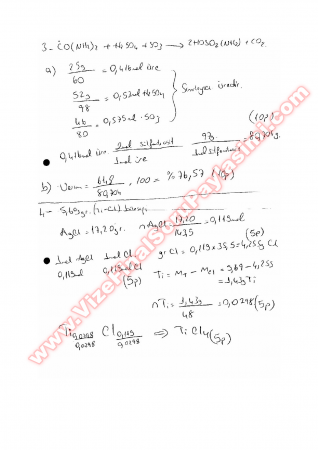 3- CO(NH2)2 + H2SO4 + SO3 → 2HOSO2(NH2) + CO2
a) 25g / 60 = 0,416mol üre
52g / 98 = 0,53mol H2SO4
46 / 80 = 0,575mol SO3
Sınırlayıcı üredir.
(10p)
0,416mol üre . 2mol sülfamikasit / 1mol üre . 97g / 1mol sülfamikasit = 80,704g.
b) Verim = / 80,704 . 100 = % 76,57
4- 5,69gr.
AgCl = 17,20gr. nAgCl 17,20 / 143,5 = 0,119mol
(5p)
1mol AgCl 1mol Cl gr Cl = 0,119x35,5=4,255g Cl
0,119mol 0,119mol Cl
(5p)
Ti = MT - MCl = 5,69-4,255
= 1,43g Ti
nTi = 1,43g / 48 = 0,0298 (5p)
Ti 0,0298 / 0,0298 Cl 0,119 / 0,0298 ⇒ TiCl4 (5p)
www.VizeFinalSoruPaylasimi.com